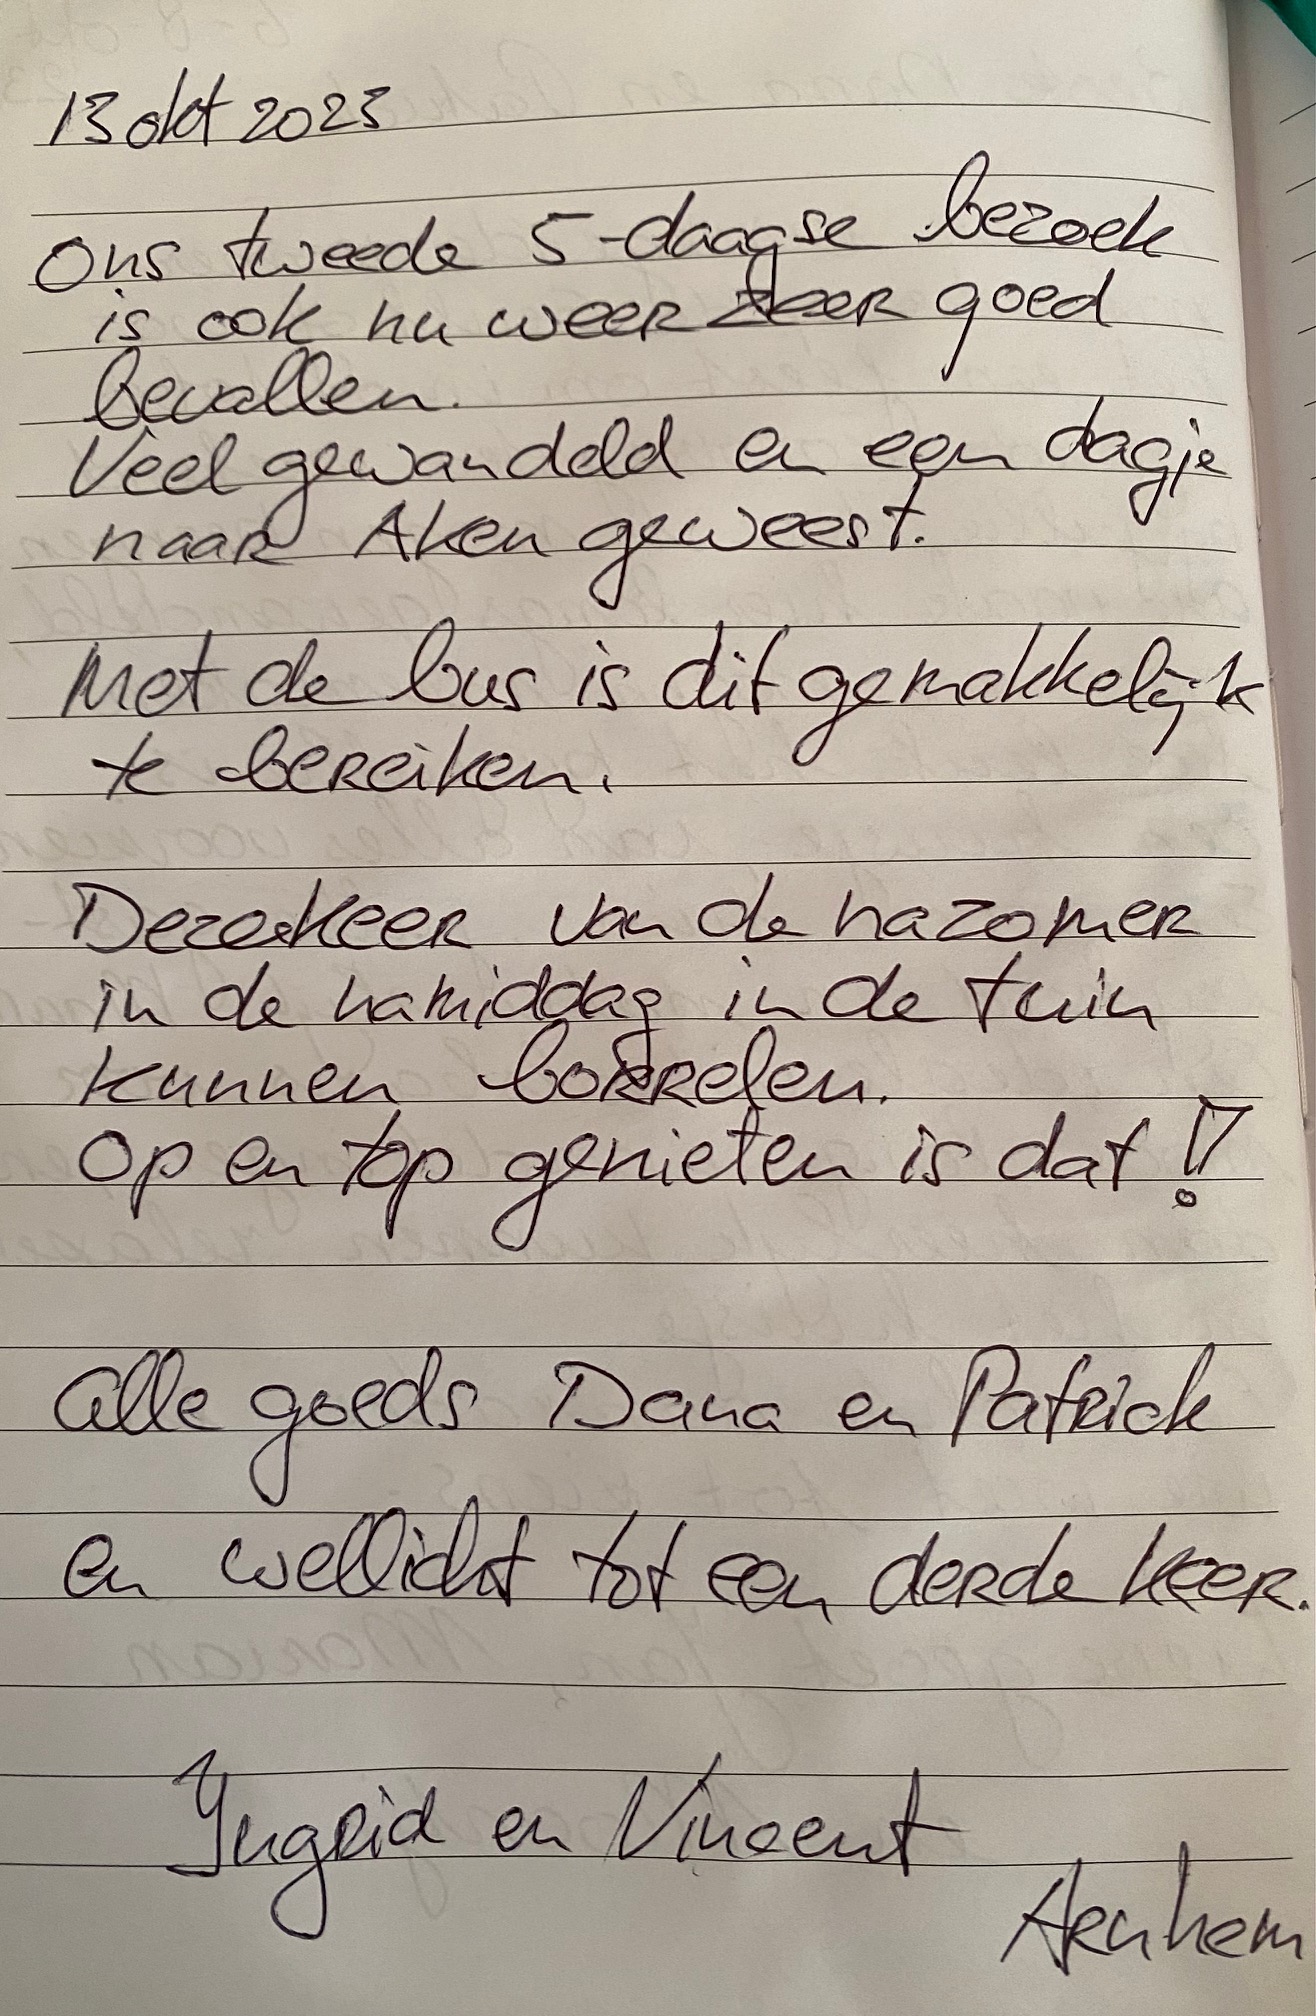 13 okt 2023
Ons tweede 5-daagse bezoek
is ook nu weer zeer goed
bevallen.
Veel gewandeld en een dagje
naar Aken geweest.
Met de bus is dit gemakkelijk
te bereiken.
Deze keer van de nazomer
in de namiddag in de tuin
kunnen borrelen.
Op en top genieten is dat!
Alle goeds Dana en Patrick
en wellicht tot een derde keer.
Yngrid en Vincent
Arnhem